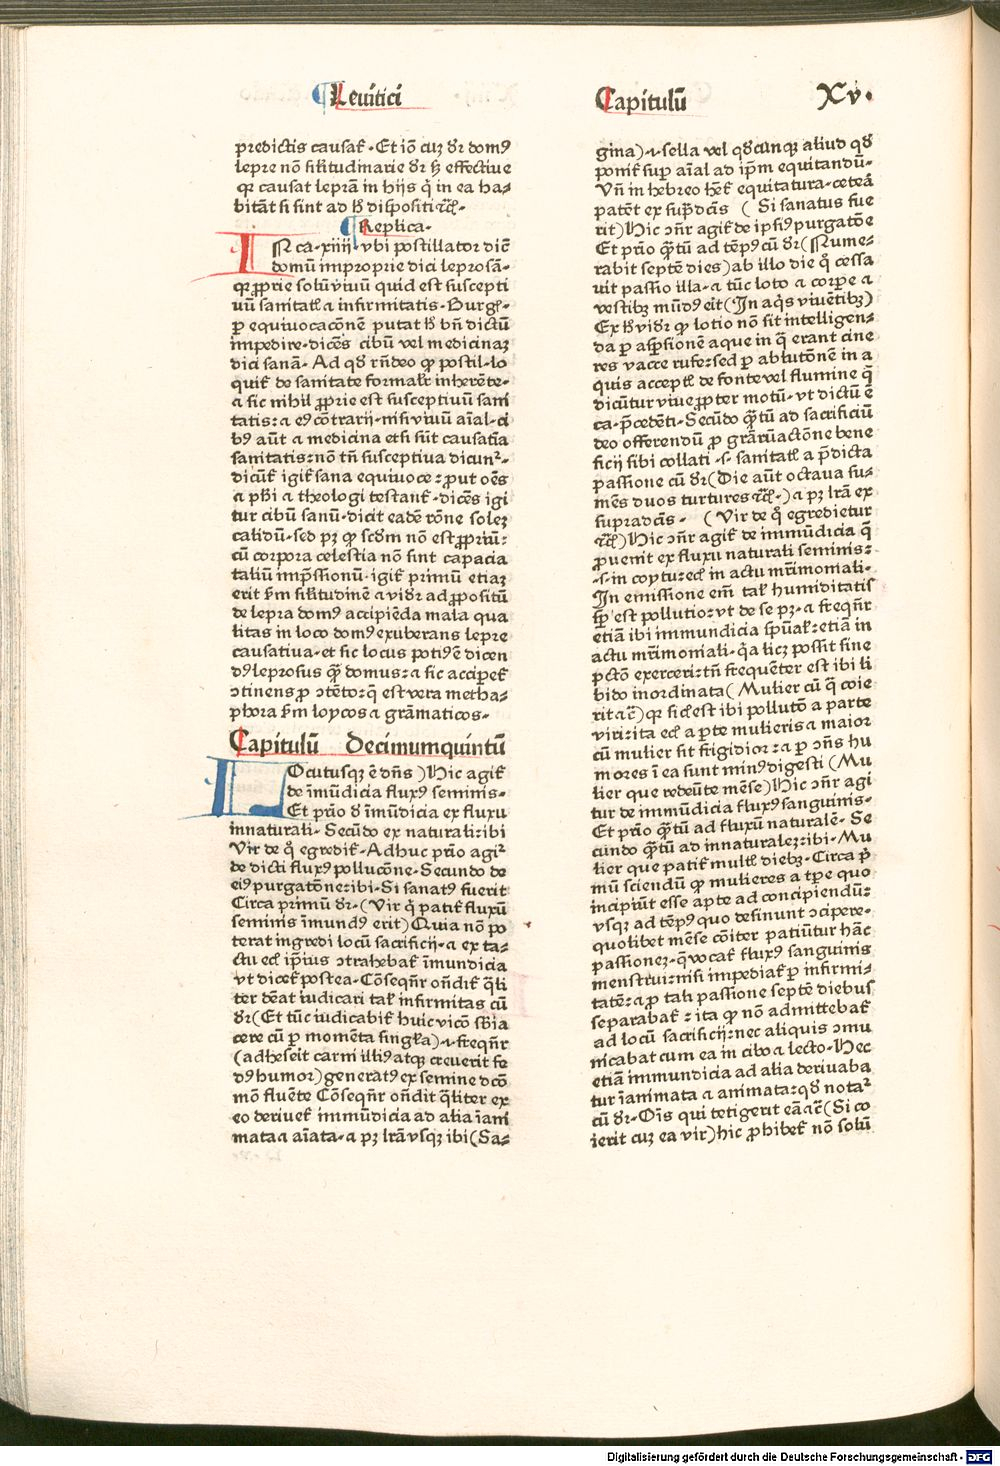 Leuitici
Capitulū
Xv.
predictis causat̄. Et iō cuz dr̄ domꝰ
lepre nō silitudinarie dr̄ sꝫ effectiue
qꝛ causat leprā in hijs q̄ in ea ha⸗
bitāt si sint ad hͦ dispositi ⁊c̄.
Replica.
IN ca. xiiij. vbi postillator dicē
domū improprie dici leprosā.
qꝛ ꝓprie solū viuū quid est suscepti
uū sanitat̄ a infirmitatis. Burgē.
ꝑ equiuocacōnē putat hͦ bn̄ dictū
impedire. dicēs cibū vel medicinaz
dici sanā. Ad qd̄ rn̄deo ꝙ postil. lo
quit̄ de sanitate formalr̄ inherēte.
a sic nihil ꝓprie est susceptiuū sani
tatis: a eꝰ cōtrarij. nisi viuū aīal. ci
bꝰ aūt a medicina etsi sūt causatīa
sanitatis: nō tn̄ susceptiua dicunt̄.
dicūt̄ igit̄ sana equiuoce: ꝓut oēs
a phi a theologi testant̄. dicēs igi
tur cibū sanū. dicit eadē rōne solez
calidū. sed pꝫ ꝙ scd̄m nō est ꝓpriū:
cū corpora celestia nō sint capacia
taliū imp̄ssionū. igit̄ primū etiaz
erit ẜm silitudinē a vidr̄ ad ꝓpositū
de lepra domꝰ accipiēda mala qua
litas in loco domꝰ exuberans lepre
causatiua. et sic locus potiꝰ ē dicen
dꝰ leprosus q̄ȝ domus: a sic accipet̄
ↄtinens ꝓ ↄtēto: q̄ est vera metha⸗
phora ẜm loycos a grāmaticos.
Capitulū Decimumquintū
LOcutusqꝫ ē dn̄s) Hic agit̄
de īmūdicia fluxꝰ seminis.
Et prīo d̄ īmūdicia ex fluxu
innaturali. Secūdo ex naturali: ibi
Vir de q̄ egredit̄. Adhuc prīo agit̄
de dicti fluxꝰ pollucōne. Secundo de
eiꝰ purgatōne: ibi. Si sanatꝰ fuerit
Circa primū dr̄. (Vir q̄ patit̄ fluxū
seminis īmundꝰ erit) Quia nō po
terat ingredi locū sacrificij. a ex ta⸗
ctu eciā ipsius ↄtrahebat̄ īmundicia
vt dicet̄ postea. Cōseqn̄r on̄dit̄ q̄li
ter dēat iudicari tal̄ infirmitas cū
dr̄ (Et tūc iudicabit̄ huic vicō sbia
cere cū ꝑ momēta singl̄a) a freqn̄r
(adheseit carni illiꝰ atqꝫ creuerit fe
dꝰ humor) generatꝰ ex semine dcō
mō fluēte Cōseqn̄r on̄dit q̄liter ex
eo deriuet̄ immūdicia ad alia īani
mata a aīata. a pꝫ lrā vsqꝫ ibi (Sa⸗
gma) a sella vel qd̄cunqꝫ aliud qd̄
ponit̄ suꝑ aīal ad ip̄m equitandū.
Vn̄ in hebreo het̄ equitatura. ceteā
patēt ex sup̄dcīs (Si sanatus fue
rit) Hic ↄn̄r agit̄ de ipsiꝰ purgatōe
Et prīo q̄ȝtū ad tēpꝰ cū dr̄ (Nume⸗
rabit septē dies) ab illo die q̄ cessa
uit passio illa. a tūc loto a corꝑe a
vestibꝫ mūdꝰ eīt (In aq̄s viuētibꝫ)
Ex hͦ vidr̄ ꝙ lotio nō sit intelligen⸗
da ꝑ asꝑsionē aque in q̄ erant cine
res vacce rufe: sed ꝑ ablutōnē in a
quis accept̄ de fonte vel flumine q̄
dicūtur viue ꝓpter motū. vt dictū ē
ca. p̄cedēti. Secūdo q̄ȝtū ad sacrificiū
deo offerendū ꝓ grāꝝactōne bene
ficij sibi collati .s. sanitat̄ a p̄dicta
passione cū dr̄ (Die aūt octaua su⸗
mēs duos turtures ⁊c̄.) a pꝫ lrā ex
supradcīs. (Vir de q̄ egredietur
⁊c̄) Hic ↄn̄r agit̄ de immūdicia q̄
ꝓuenit ex fluxu naturali seminis:
.s. in coytu: eciā in actu mr̄imoniali.
In emissione em̄ tal̄ humiditatis
sp̄ est pollutio: vt de se pꝫ. a freqn̄r
etiā ibi immundicia sp̄ual̄: etiā in
actu mr̄imoniali. q̄a licz possit sine
pctō exerceri: tn̄ frequēter est ibi li
bido inordinata (Mulier cū q̄ coie
rit ⁊c̄) qꝛ sicl̄ est ibi pollutō a parte
viri: ita eciā a ꝑte mulieris a maior
cū mulier sit frigidior: a ꝑ ↄn̄s hu
mores ī ea sunt minꝰ digesti (Mu
lier que redeūte mēse) Hic ↄn̄r agi
tur de immūdicia fluxꝰ sanguinis.
Et prīo q̄ȝtū ad fluxū naturalē. Se
cūndo q̄ȝtū ad innaturalez: ibi. Mu
lier que patit̄ mult̄ diebꝫ. Circa p̄
mū sciendū ꝙ mulieres a tꝑe quo
incipiūt esse apte ad concipiendū:
vsqꝫ ad tēpꝰ quo desinunt ↄcipere.
quolibet mēse cōiter patiūtur hāc
passionez. q̄ vocat̄ fluxꝰ sanguinis
menstrui: nisi impediat̄ ꝑ infirmi⸗
tatē: a ꝓ tali passione septē diebus
separabat̄: ita ꝙ nō admittebat̄
ad locū sacrificij: nec aliquis ↄmu
nicabat cum ea in cibo a lecto. Hec
etiā immundicia ad alia deriuaba
tur īanimata a animata: qd̄ notat̄
cū dr̄. Oīs qui tetigerit eā ⁊c̄ (Si co
ierit cuz ea vir) hic ꝓhibet̄ nō solū
Digitalisierung gefördert durch die Deutsche Forschungsgemeinschaft - DFG